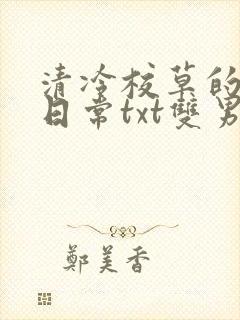 清冷校草的
日常txt雙男
鄭美香